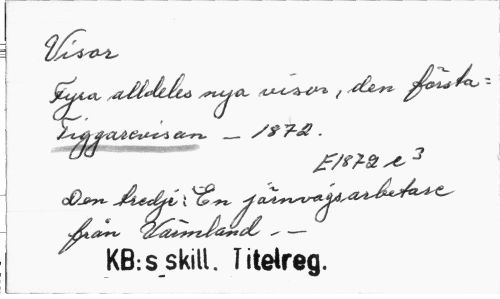 Visor
Fyra alldeles nya visor, den första=
Tiggarevisan — 1872.
E1872 e³
Den tredje: En järnvägsarbetare
från Värmland - —
KB:s skill. Titelreg.